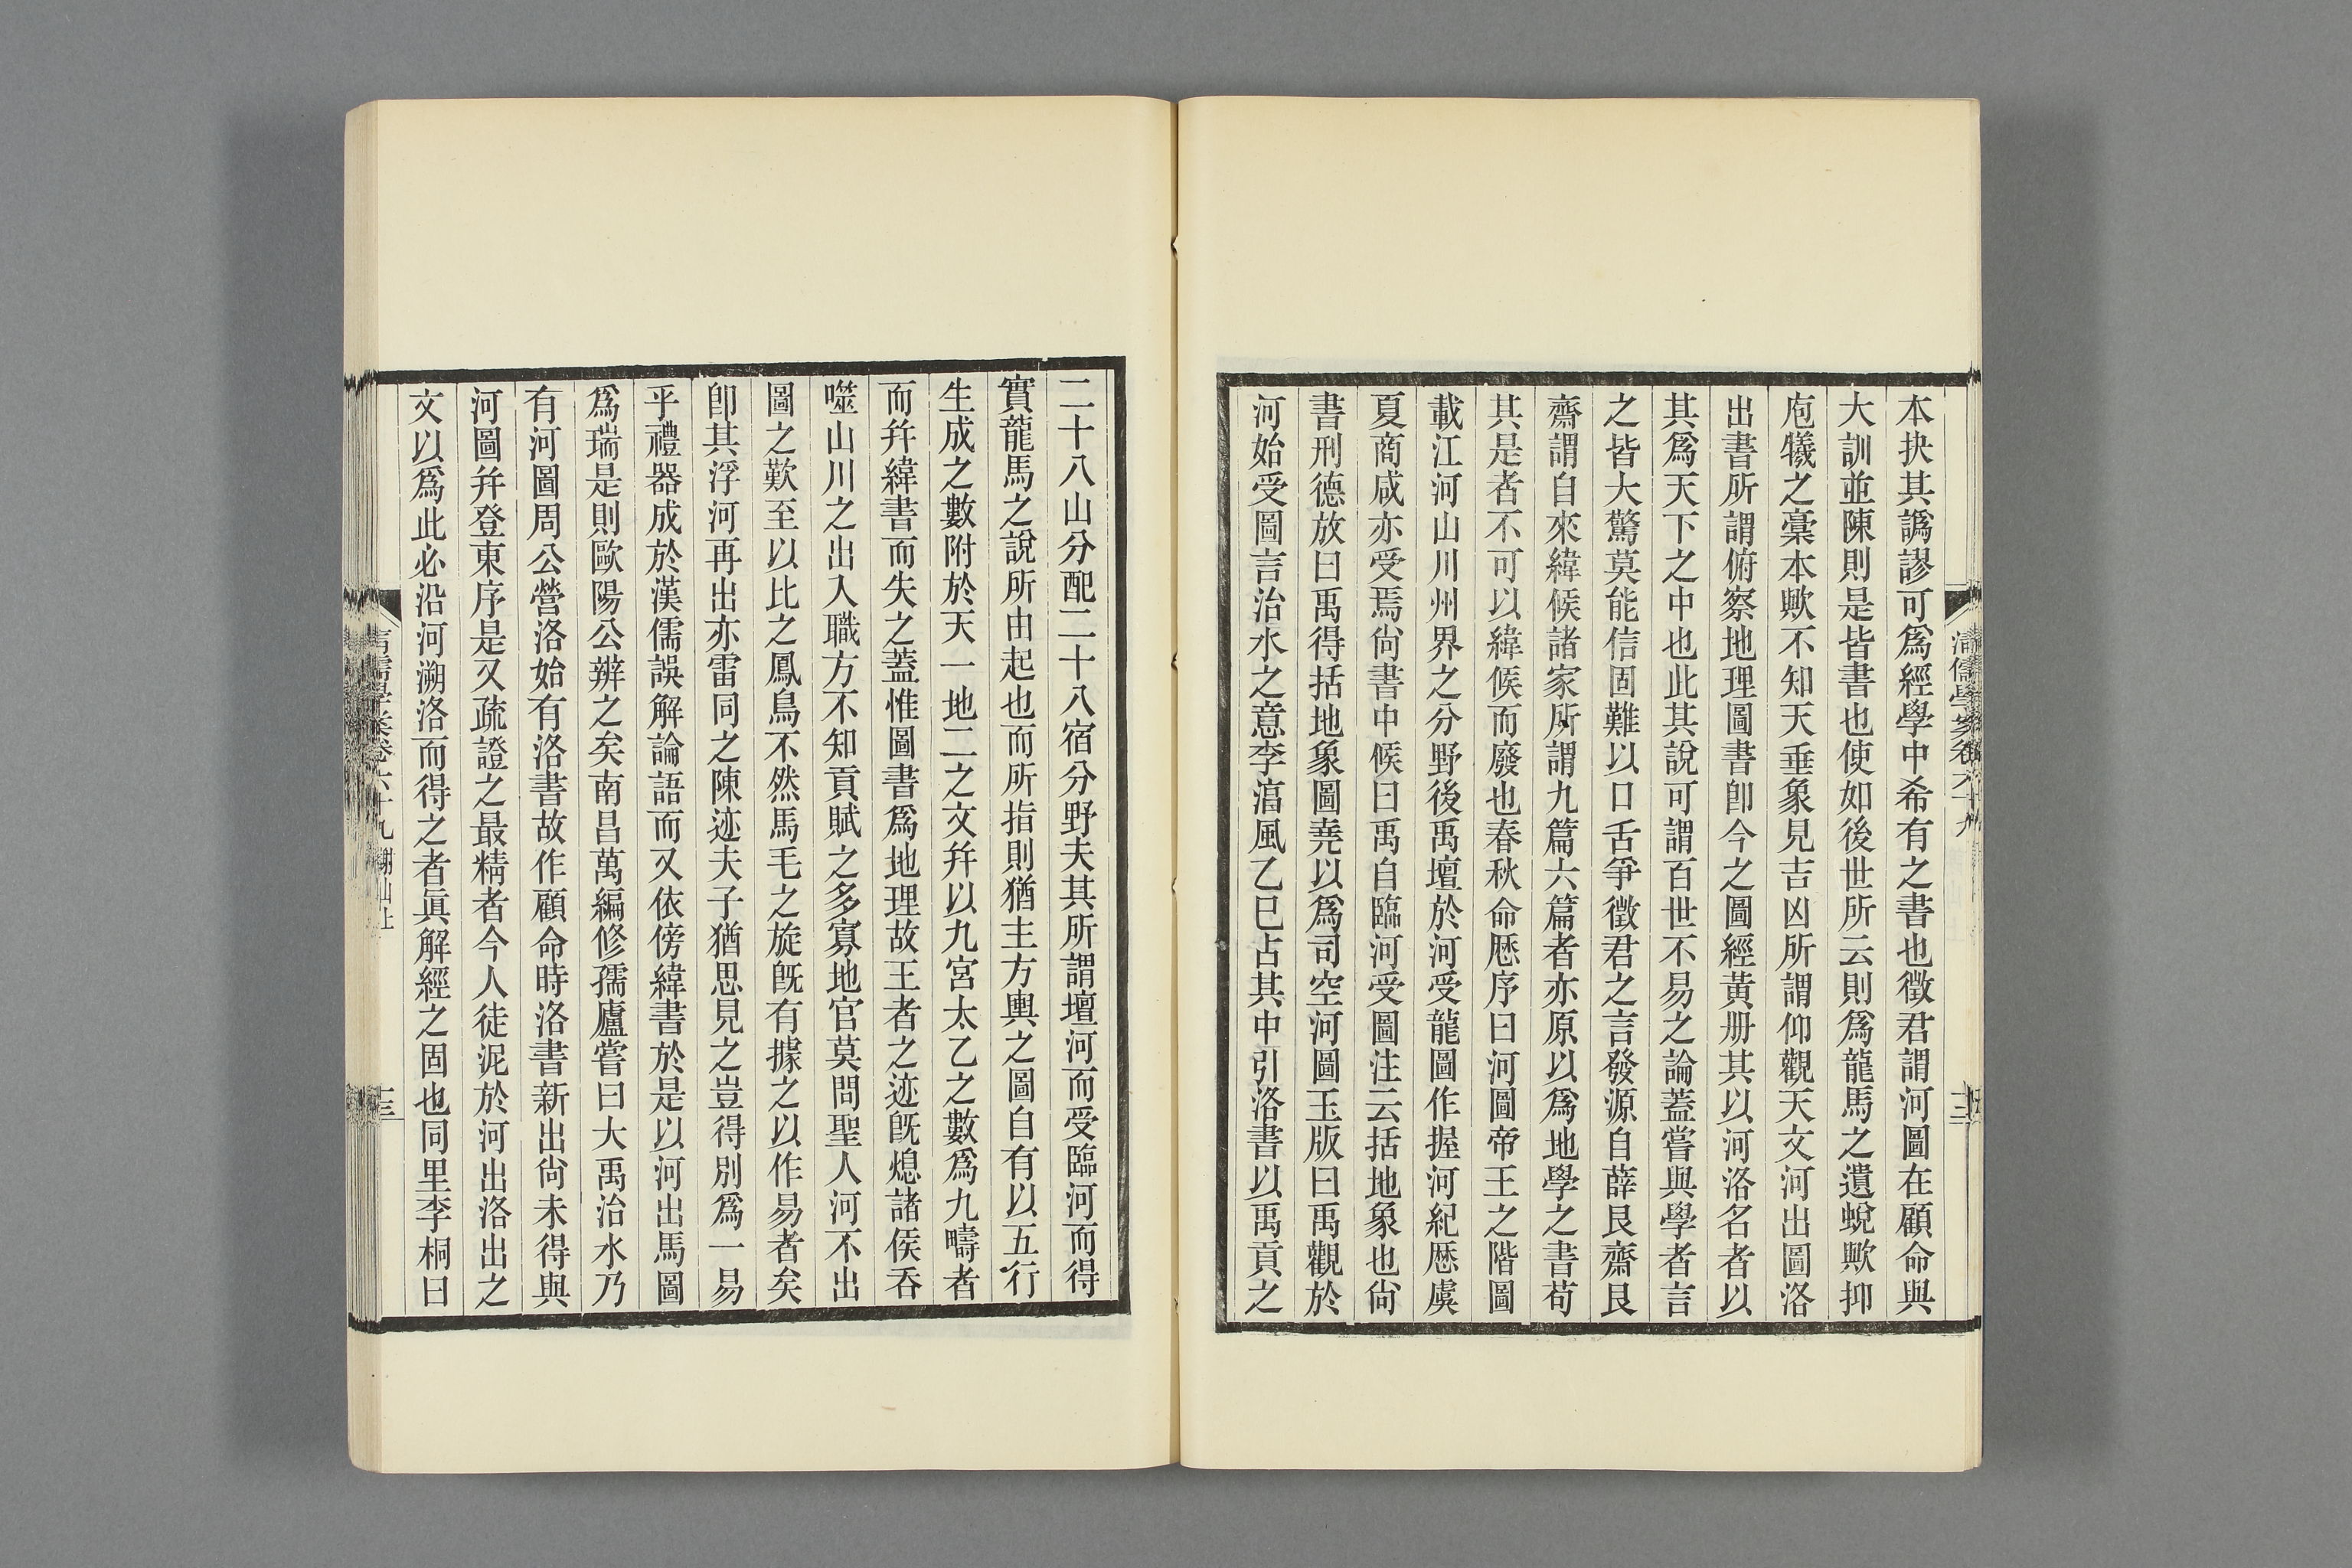 本抉其譌謬可爲經學中希有之書也徵君謂河圖在顧命與
大訓並陳則是皆書也使如後世所云則爲龍馬之遺蛻歟抑
庖犧之藁本歟不知天垂象見吉凶所謂仰觀天文河出圖洛
出書所謂俯察地理圖書卽今之圖經黃册其以河洛名者以
其爲天下之中也此其說可謂百世不易之論蓋嘗與學者言
之皆大驚莫能信固難以口舌爭徵君之言發源自薛艮齋艮
齋謂自來緯候諸家所謂九篇六篇者亦原以爲地學之書苟
其是者不可以緯候而廢也春秋命厯序曰河圖帝王之階圖
載江河山川州界之分野後禹壇於河受龍圖作握河紀厯虞
夏商咸亦受焉尙書中候曰禹自臨河受圖注云括地象也尙
書刑德放曰禹得括地象圖堯以爲司空河圖玉版曰禹觀於
河始受圖言治水之意李湻風乙巳占其中引洛書以禹貢之
二十八山分配二十八宿分野夫其所謂壇河而受臨河而得
實龍馬之說所由起也而所指則猶主方輿之圖自有以五行
生成之數附於天一地二之文幷以九宮太乙之數爲九疇者
而幷緯書而失之蓋惟圖書爲地理故王者之迹旣熄諸侯吞
噬山川之出入職方不知貢賦之多寡地官莫問聖人河不出
圖之歎至以比之鳳鳥不然馬毛之旋旣有據之以作易者矣
卽其浮河再出亦雷同之陳迹夫子猶思見之豈得別爲一易
乎禮器成於漢儒誤解論語而又依傍緯書於是以河出馬圖
爲瑞是則歐陽公辨之矣南昌萬編修孺廬嘗曰大禹治水乃
有河圖周公營洛始有洛書故作顧命時洛書新出尙未得與
河圖幷登東序是又疏證之最精者今人徒泥於河出洛出之
文以爲此必沿河溯洛而得之者眞解經之固也同里李桐曰